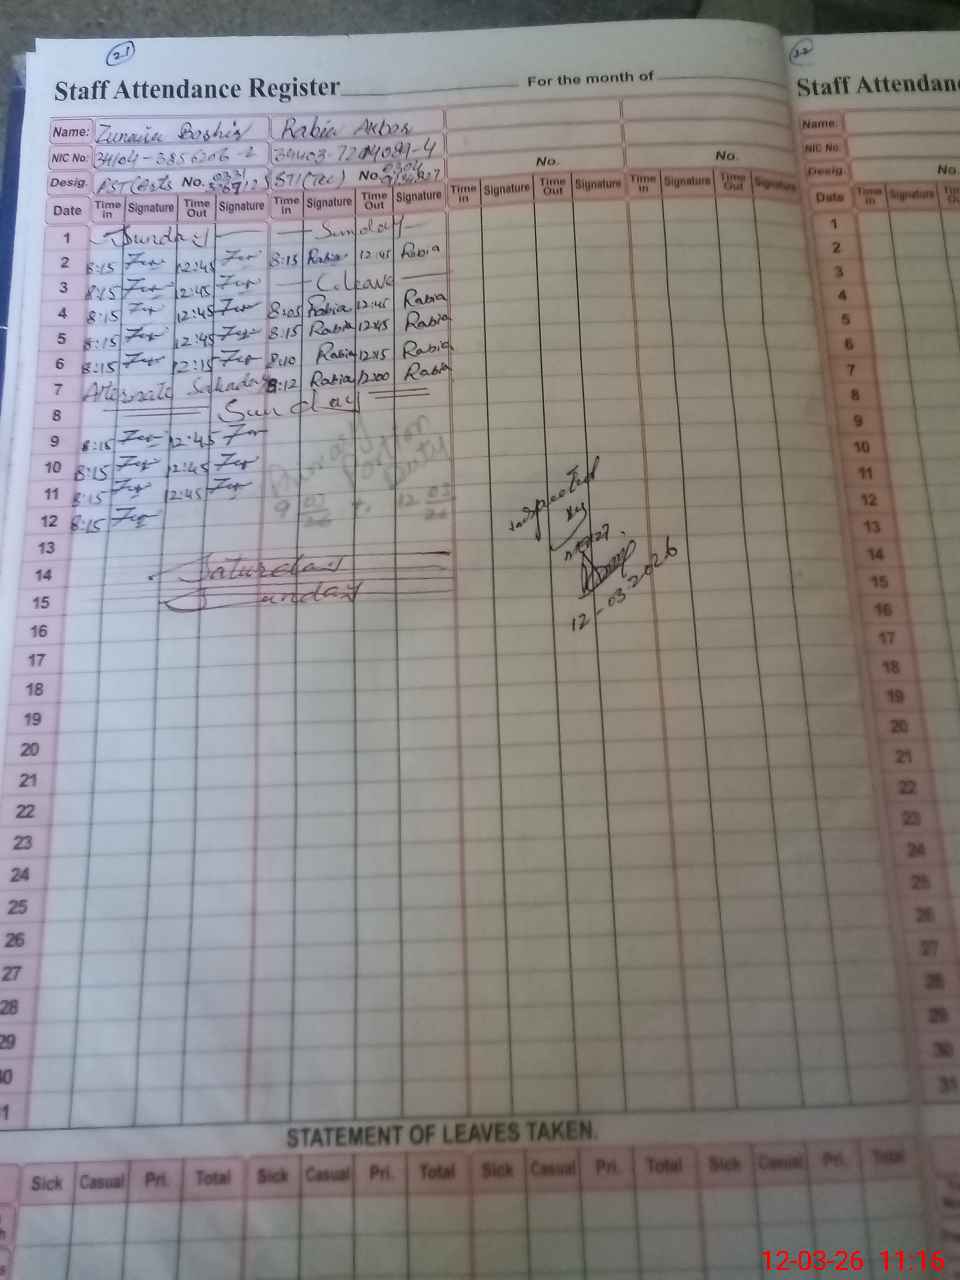 21
22
Staff Attendance Register
For the month of
Staff Attendan
Name: Zunaira Bashir Rabia Akbar
Name:
NIC No: 34104-3856206-2 34403-7204099-4
NIC No:
Desig. PST(Arts No. STI(Tec) No. No. No.
Desig. No.
Date Time In Signature Time Out Signature Time In Signature Time Out Signature Time In Signature Time Out Signature Time In Signature Time Out Signature
Date Time In Signature
1 Sunday Sunday
2 8:15 12:45 8:15 Rabia 12:45 Rabia
3 8:15 12:45 C.leave
4 8:15 12:45 8:05 Rabia 12:45 Rabia
5 8:15 12:45 8:15 Rabia 12:45 Rabia
6 8:15 12:15 8:10 Rabia 12:15 Rabia
7 Alternate Saturday 8:12 Rabia 12:00 Rabia
8 Sunday
9 8:15 12:45
10 8:15 12:45
11 8:15 12:45
12 8:15
Duty
9 03 26 to 12 03 26
Inspected
by
12-03-2026
13
14 Saturday
15 Sunday
16
17
18
19
20
21
22
23
24
25
26
27
28
29
30
31
1
2
3
4
5
6
7
8
9
10
11
12
13
14
15
16
17
18
19
20
21
22
23
24
25
26
27
28
29
30
31
STATEMENT OF LEAVES TAKEN.
Sick Casual Pri. Total Sick Casual Pri. Total Sick Casual Pri. Total Sick Casual Pri. Total
12-03-26 11:16